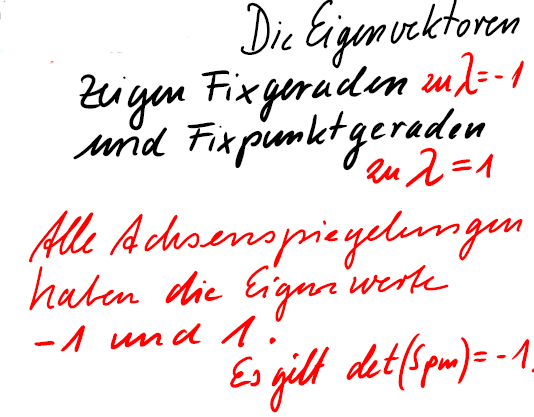 Die Eigenvektoren
zeigen Fixgeraden zu λ=-1
und Fixpunktgeraden
zu λ=1
Alle Achsenspiegelungen
haben die Eigenwerte
-1 und 1.
Es gilt det(Spm)=-1.